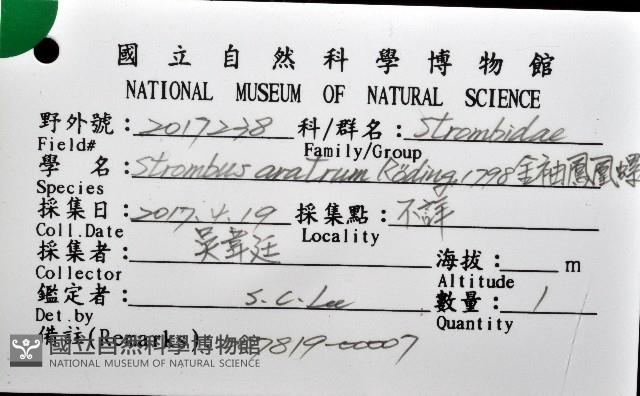 國立自然科學博物館
NATIONAL MUSEUM OF NATURAL SCIENCE
野外號: 2017238 科/群名: Strombidae
Field# Family/Group
學 名: Strombus aratrum Röding, 1798 金袖鳳凰螺
Species
採集日: 2017.4.19 採集點: 不詳
Coll.Date Locality
採集者: 吳韋廷 海拔: m
Collector Altitude
鑑定者: S.C. Lee 數量: 1
Det.by Quantity
備註(Remarks) 7819-00007
國立自然科學博物館
NATIONAL MUSEUM OF NATURAL SCIENCE